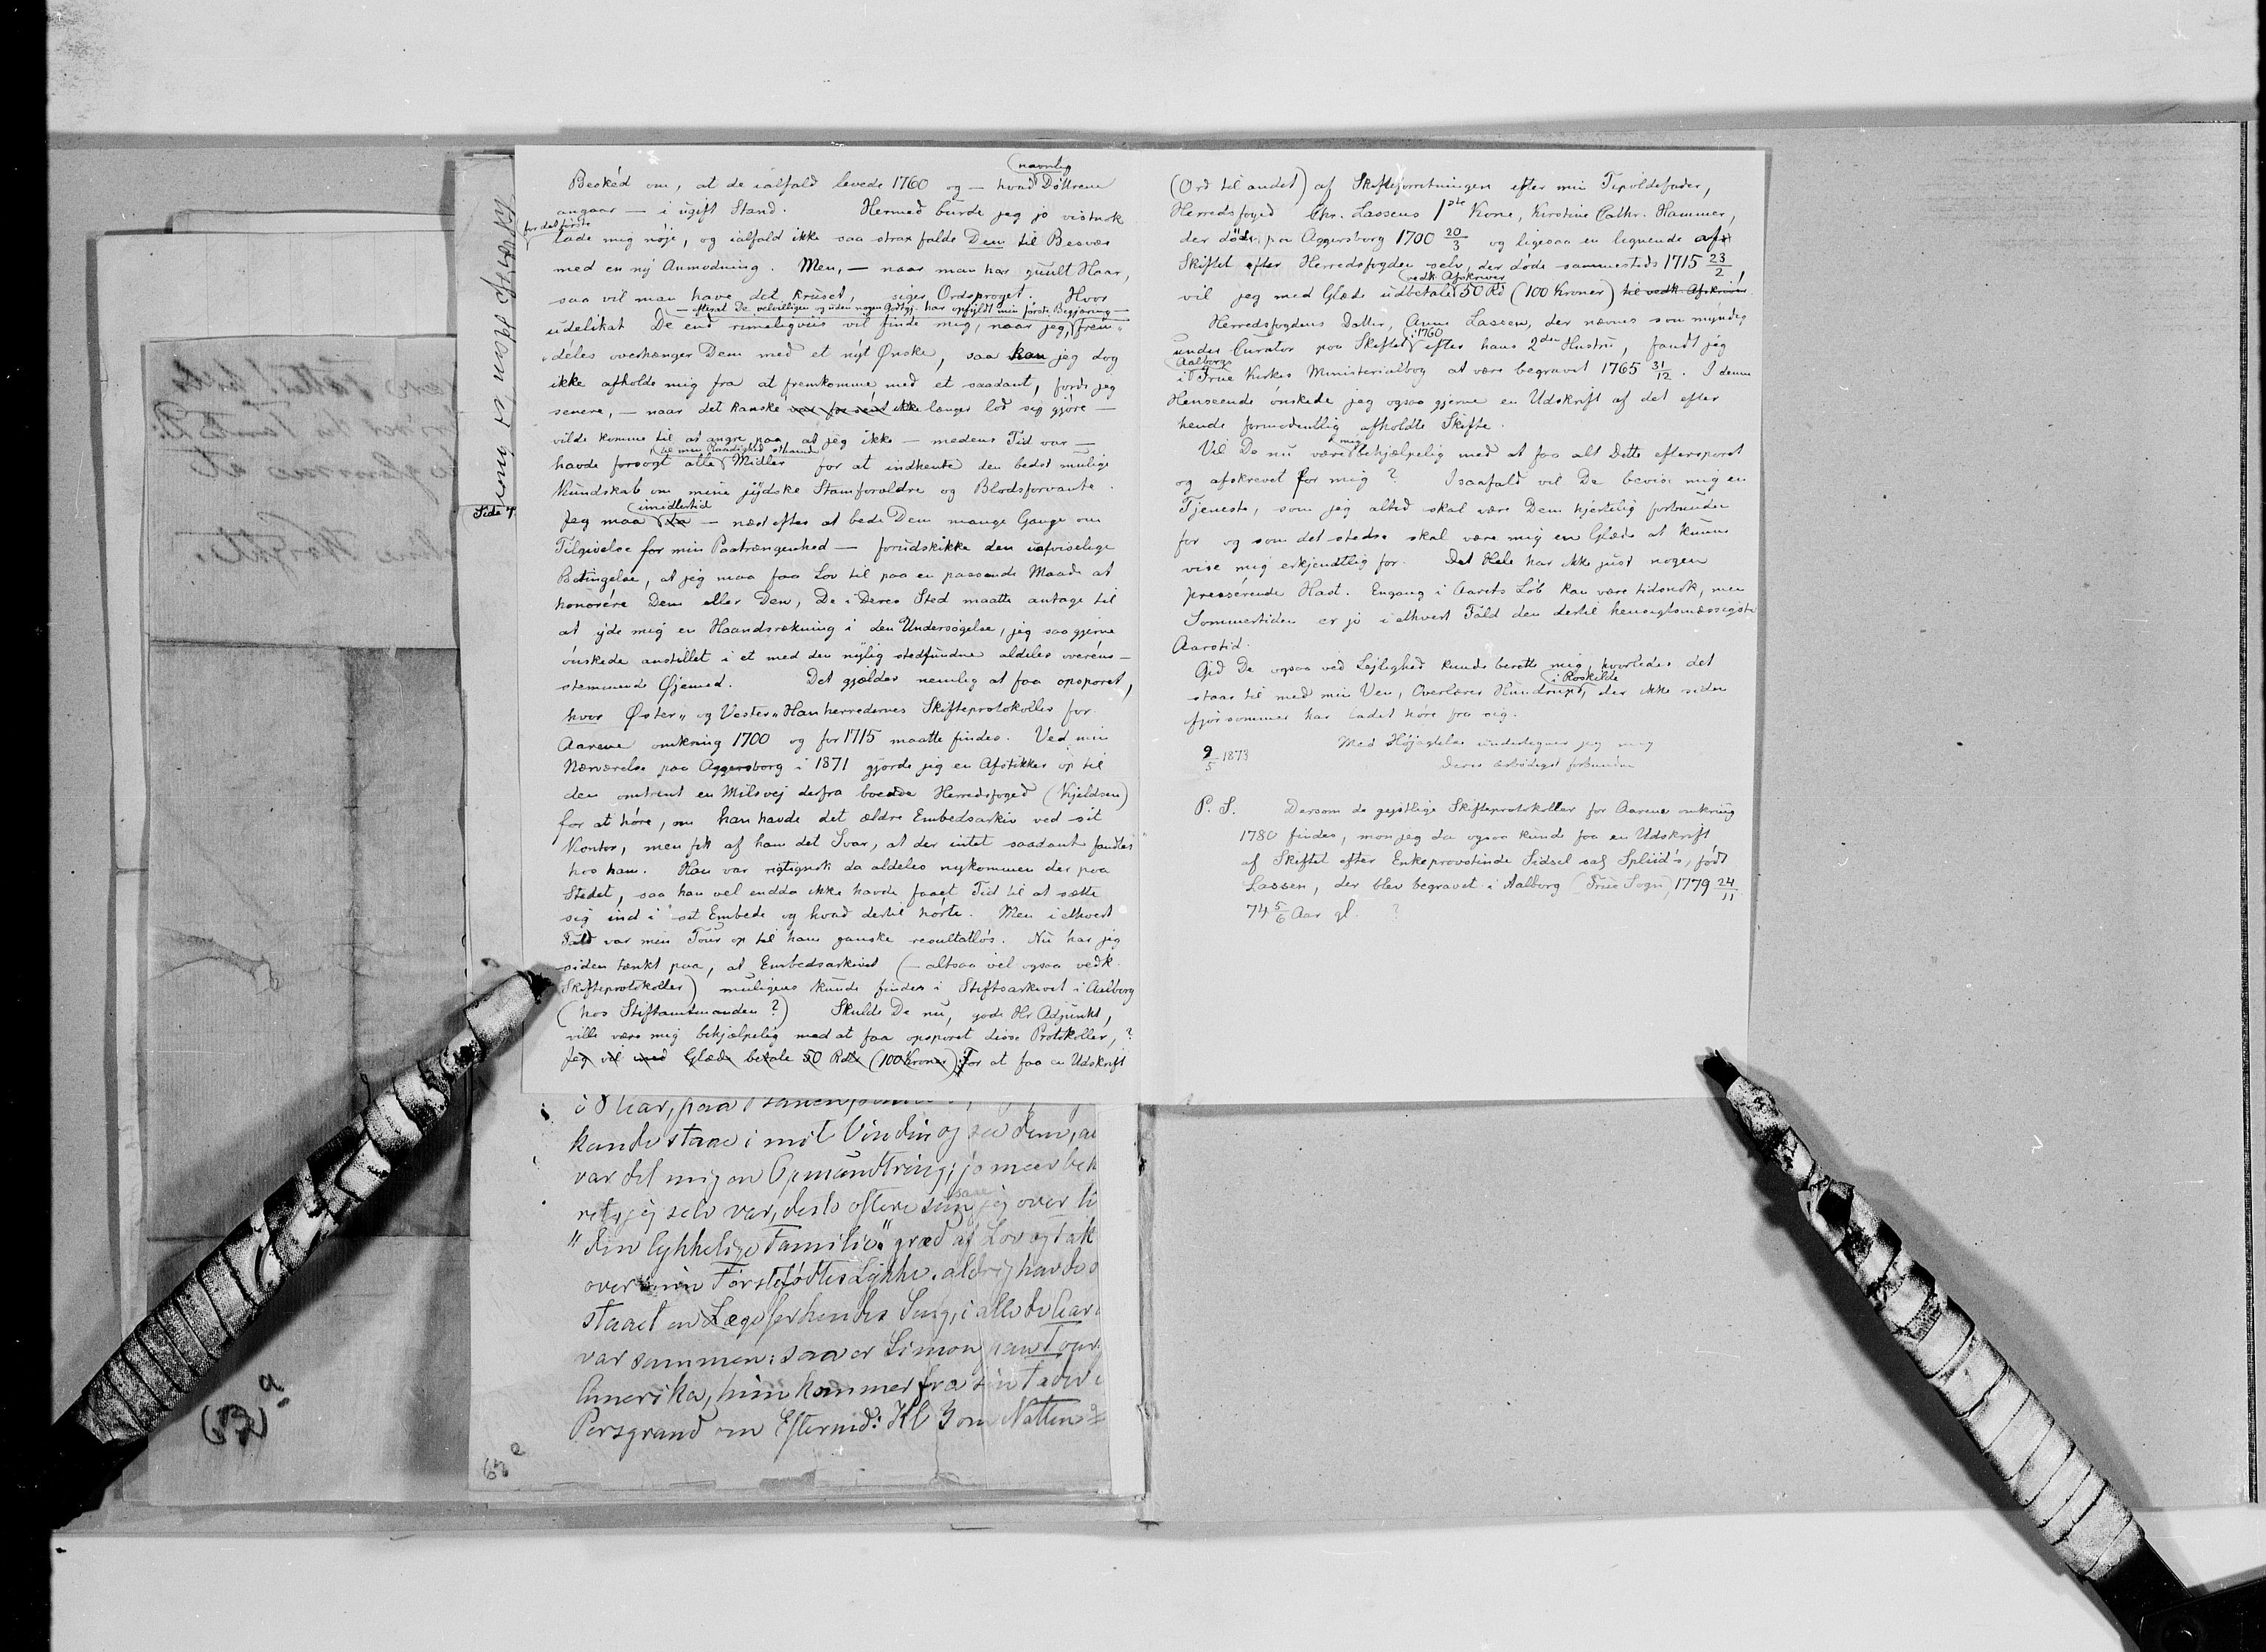 Beskéd om, at de ialfald levede 1760 og — hvad navnlig Døttrene
angaar — i ugift Stand. Hermed burde jeg jo vistnok
for det første
lade mig nøje, og ialfald ikke saa strax falde Dem til Besvær
med en ny Anmodning. Men, — naar man har guult Haar,
saa vil man have det kruset, siger Ordsproget. Hvor
— efterat De velvilligen og uden nogen Godtgj. har opfyldt min første Begjæring —
udelikat De end rimeligviis vil finde mig, naar jeg, frem-
deles overhænger Dem med et nyt Ønske, saa kan jeg dog
ikke afholde mig fra at fremkomme med et saadant, fordi jeg
senere, — naar det kanské var for sent ikke længer lod sig gjøre —
vilde komme til at angre paa, at jeg ikke — medens Tid var —
til min Raadighed staaende
havde forsøgt alle Midler for at indhente den bedst mulige
Kundskab om mine jydske Stamforældre og Blodsforvante.
Side 4.
imidlertid
Jeg maa da — næst efter at bede Dem mange Gange om
Tilgivelse for min Paatrængenhed — forudskikke den uafviselige
Betingelse, at jeg maa faa Lov til paa en passende Maade at
honorére Dem eller Den, De i Deres Sted maatte antage til
at yde mig en Haandsrækning i den Undersøgelse, jeg saa gjerne
ønskede anstillet i et med den nylig stedfundne aldeles overéns-
stemmende Øjemed. Det gjælder nemlig at faa opsporet,
hvor Øster- og Vester-Hanherredernes Skifteprotokoller for
Aarene omkring 1700 og for 1715 maatte findes. Ved min
Nærværelse paa Aggersborg i 1871 gjorde jeg en Afstikker op til
den omtrent en Milsvej derfra boende Herredsfoged (Kjeldsen)
for at høre, om han havde det ældre Embedsarkiv ved sit
Kontor, men fik af ham det Svar, at der intet saadant fandtes
hos ham. Han var rigtignok da aldeles nykommen der paa
Stedet, saa han vel endda ikke havde faaet Tid til at sætte
sig ind i sit Embede og hvad dertil hørte. Men i ethvert
Fald var min Tour op til ham ganske resultatløs. Nu har jeg
siden tænkt paa, at Embedsarkivet (— altsaa vel ogsaa vedk.
Skifteprotokoller) muligens kunde findes i Stiftsarkivet i Aalborg
(hos Stiftamtmanden?) Skulde De nu, gode Hr Adjunkt,
ville være mig behjælpelig med at faa opsporet disse Protokoller,?
Jeg vil med Glæde betale 50 Rdlr (100 Kroner) For at faa en Udskrift
(Ord til andet) af Skifteforretningen efter min Tipoldefader,
Herredsfoged Chr. Lassens 1ste Kone, Kirstine Cathr. Hammer,
der døde paa Aggersborg 1700 20/3 og ligesaa en lignende af
Skiftet efter Herredsfogden selv, der døde sammesteds 1715 23/2,
vedk. Afskriver
vil jeg med Glæde udbetale 50 Rd (100 Kroner) til vedk. Afskriver
Herredsfogdens Datter, Anne Lassen, der nævnes som myndig
under Curator paa Skiftet i 1760 efter hans 2den Hustru, fandt jeg
Aalborg
i Frue Kirkes Ministerialbog at være begravet 1765 31/12. I denne
Henseende ønskede jeg ogsaa gjerne en Udskrift af det efter
hende formodentlig afholdte Skifte.
Vil De nu være mig behjælpelig med at faa alt Dette eftersporet
og afskrevet for mig? Isaafald vil De bevise mig en
Tjeneste, som jeg altid skal være Dem hjertelig forbunden
for og som det stedse skal være mig en Glæde at kunne
vise mig erkjendtlig for. Det Hele har ikke just nogen
pressérende Hast. Engang i Aarets Løb kan være tidsnok, men
Sommertiden er jo i ethvert Fald den dertil hensigtsmæssigste
Aarstid.
Gid De ogsaa ved Lejlighed kunde berette mig, hvorledes det
i Roskilde
staar til med min Ven, Overlærer Hundrup, der ikke siden
ifjor sommer har ladet høre fra sig.
9/5 1873 Med Højagtelse undertegner jeg mig
Deres ærbødigst forbundne
P. S. Dersom de gejstlige Skifteprotokoller for Aarene omkring
1780 findes, mon jeg da ogsaa kunde faa en Udskrift
af Skiftet efter Enkeprovstinde Sidsel sal. Spliid's, født
Lassen, der blev begravet i Aalborg (Frue Sogn) 1779 24/11
74 5/6 Aar gl. ?
kunde staae i mit Vindu og see dem,
var det mig en Opmuntring; jo meer
jeg selv var, desto oftere saae jeg over
"den lykkelige Familie" græd af Lov og Tak
over min Førstefødtes Lykke. aldrig havde
staaet en Læge for hendes Seng, i alle de Aar
var sammen: saa er Simon paa Tour
Amerika, hun kommer fra sin Fader
Porsgrund om Eftermid: Kl 3 om Natten
63 a
63 e